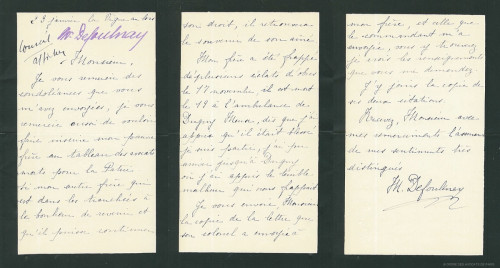 23 janvier
M. Defoulnay
Monsieur,
Je vous remercie des
condoléances que vous
m'avez envoyées, je vous
remercie aussi de vouloir
faire inscrire mon pauvre
frère au tableau des morts
morts pour la Patrie.
Si mon autre frère qui
est dans les tranchées à
le bonheur de revenir et
qu'il puisse continuer
son droit, il retrouvera
le souvenir de son aîné.
Mon frère a été frappé
de plusieurs éclats d'obus
le 17 novembre il est mort
le 19 à l'ambulance de
Dugny Meuse, dès que j'ai
appris qu'il était blessé
je suis partie, j'ai pu
aller jusqu'à Dugny
où j'ai appris le terrible
malheur qui nous frappait.
Je vous envoie, Monsieur
la copie de la lettre que
son colonel a envoyée à
mon frère, et celle que
le commandant m'a
envoyée, vous y trouverez
je crois les renseignements
que vous me demandez.
J'y joins la copie de
ses deux citations.
Recevez, Monsieur avec
mes remerciements l'assurance
de mes sentiments très
distingués.
M. Defoulnay